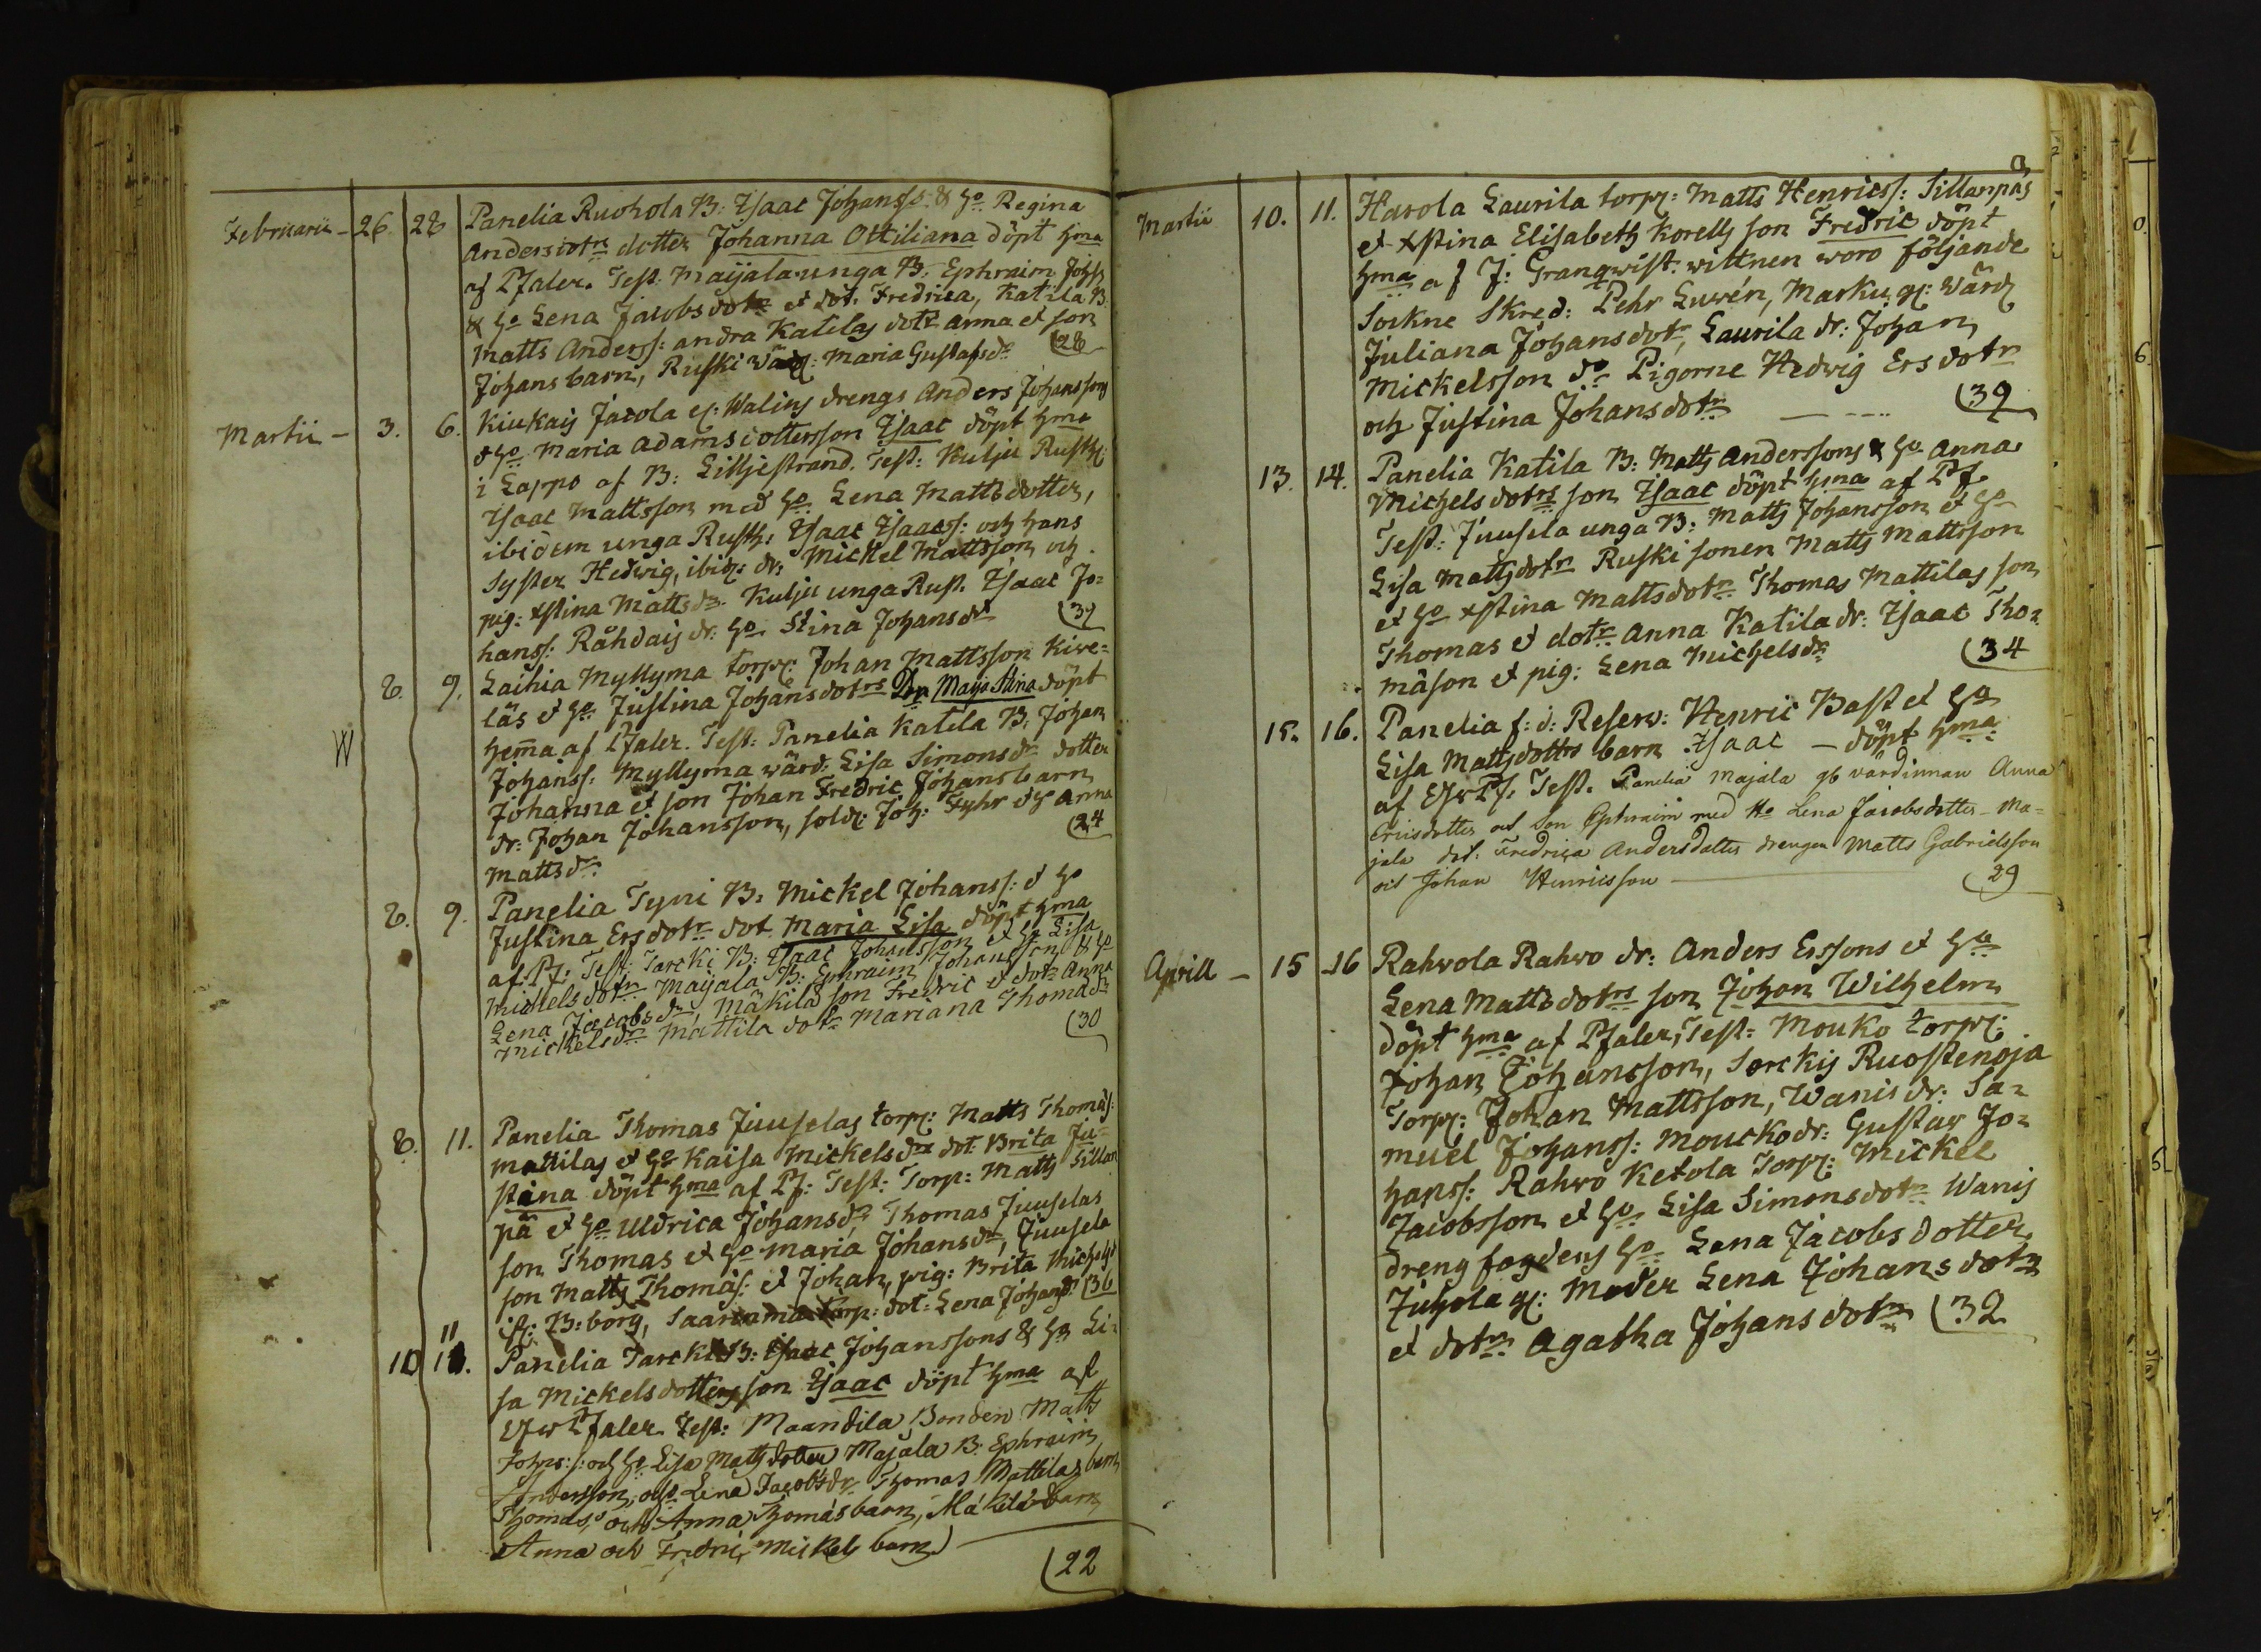 Februarii - 26. 28 Panelia Ruohola B: Isaac Johanss: & Ho Regina
Andersdotrs dotter Johanna Ottiliana döpt hma
af Pfaler. Test: Maijala unga B: Ephraim Johss
& Ho Lena Jacobsdotr et dot. Fredrica, Katila B
Matts Anderss: andra Katilas dotr Anna et son
Johans barn, Ruski Wärd: Maria Gustafsdr (28
Martii - 3. 6. Kiukais Jacola Walins drengs Anders Johanssons
& Ho Maria Adamsdotters son Isaac döpt hma
i Lappo af B: Liljestrand. Test: Kulju Rusth:
Isaac Mattsson med Ho Lena Mattsdotter,
ibidem unga Rusth: Isaac Isaacs: och hans
Syster Hedwig, ibid: dr: Mickel Mattsson och
pig: Xstina Mattsdr. Kulju unga Rust. Isaac Jo=
hanss: Råhdais dr: Ho Stina Johansdr (37
8. 9. Laihia Myllyma torp: Johan Mattsson Kiwe=
läs et Ho Justina Johansdotrs Dr Maija Stina döpt
hema af Pfaler. Test: Panelia Katila B: Johan
Johanss: Myllyma wärd: Lisa Simonsdr dotter
Johanna et son Johan Fredric Johans barn
dr: Johan Johansson, sold: Joh: Fyhr & H Anna
Mattsdr: (24
8. 9. Panelia Tyni B: Mickel Johanss: et Ho
Justina Ersdotr dot Maria Lisa döpt hma
af Pf: Test: Tarcki B: Isaac Johansson et Ho Lisa
Michelsdotr Maijala B: Ephraim Johansson & Ho
Lena Jacobsdr, Mäkilä son Fredric et dotr Anna
Mickelsdr Mattila dotr Mariana Thomädr (30
8. 11. Panelia Thomas Juuselas torp: Matts Thomäs:
Mattilas et Ho Kaisa Mickelsdrs dot: Brita Ju=
stina döpt hma af Pf: Test: Torp: Matts Sillan
pä et Ho Uldrica Johansdr Thomas Juuselas
son Thomas et Ho Maria Johansdr, Juusela
son Matts Thomäs: et Johan, pig: Brita Michelsd
B:borg, Saarenmaa torp: dot: Lena Johansdr (36
10 11. Panelia Tarcki B: Isaac Johanssons & Ho Li=
sa Mickelsdotters son Isaac döpt hma af
Pfaler. Test: Maandila Bonden Matts
Johns: och Ho Lisa Matsdotter Majala B: Ephraim
Andersson, Lena Jacobsdr Thomas Mattilas barn
Thomas, och Anna Thomäs barn, Mäkilä barn
Anna och Fredric Mickels barn) (22
W
Martii 10. 11. Harola Laurila torp: Matts Henricss: Sillanpäs
et Xstina Elisabeth Korells son Fredric döpt
hma af J: Granqwist: wittnen woro följande
Sockne Skred: Pehr Luwén, Marku g: Wärd
Juliana Johansdotr, Laurila dr: Johan
Mickelsson do Pigorne Hedwig Ersdotr
och Justina Johansdotr (39
13. 14. Panelia Katila B: Matts Anderssons & Ho Anna
Michelsdotrs son Isaac döpt hma af Pf
Test: Juusela unga B: Matts Johansson et Ho
Lisa Mattsdotr Ruski sonen Matts Mattsson
et Ho Xstina Mattsdotr Thomas Mattilas son
Thomas et dotr Anna Katila dr: Isaac Tho=
mäson et pig: Lena Michelsdr (34
15. 16. Panelia f: d: Reserv: Henric Bast et Ho
Lisa Mattsdotters barn Isaac - döpt hma
af Pf. Test. Panelia Majala gb värdinnan Anna
Ericsdotter och son Ephraim med Ho Lena Jacobsdotter - Ma=
jala dot: Fredrica Andersdotter drengen Matts Gabrielsson
och Johan Henricsson (29
Aprill - 15 16 Rahvola Rahvo dr: Anders Erssons et Ho
Lena Mattsdotrs son Johan Wilhelm
döpt hma af Pfaler, Test: Mouko torp:
Johan Johansson, Sorckis Ruostenoja
Torp: Johan Mattsson, Wanis dr: Sa=
muel Johanss: Moucko dr: Gustav Jo=
hanss: Rahvo Ketola Torp: Mickel
Jacobsson et Ho Lisa Simonsdotr Wanis
dreng fogdens Ho Lena Jacobs dotter,
Juhola g: Moder Lena Johansdotr
et dotr: Agatha Johansdotr (32